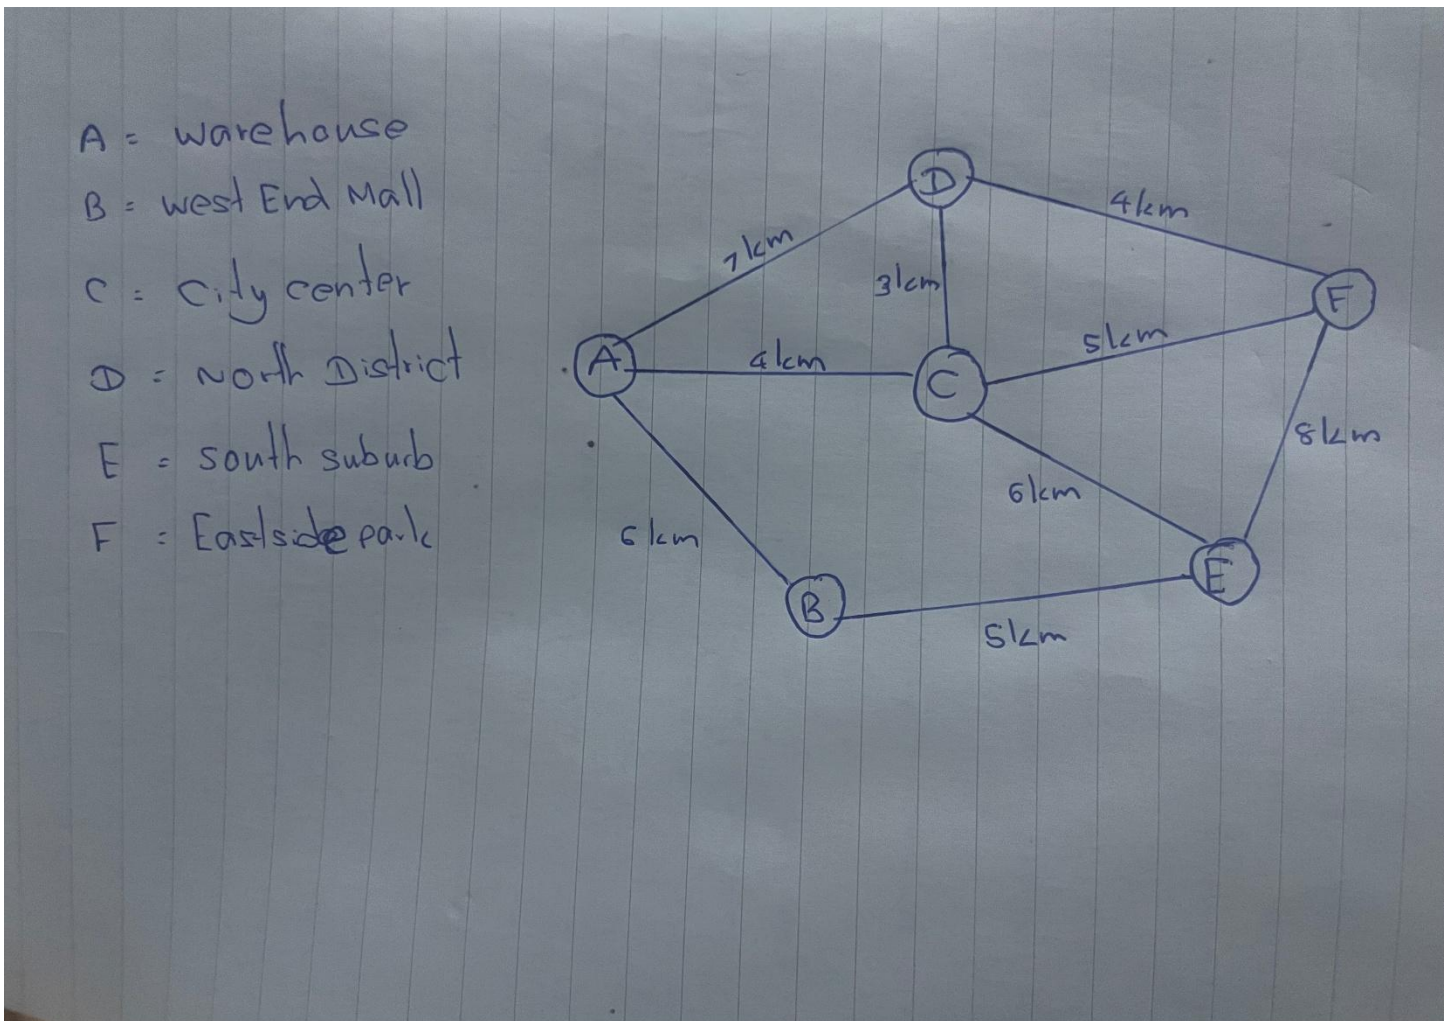 A = warehouse
B = west End Mall
C = City center
D = North District
E = south suburb
F = Eastside park
D
4km
7km
3km
F
A
4km
5km
C
8km
6km
6km
E
B
5km